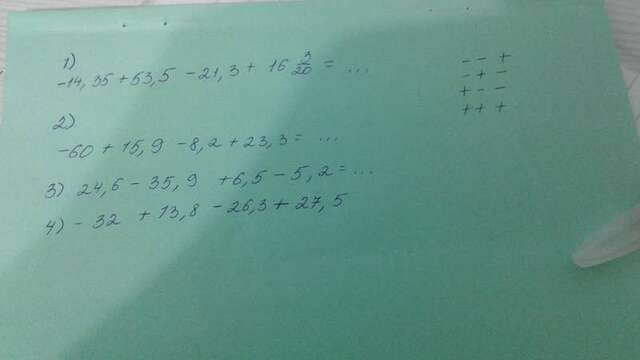 1)
-14,35 + 53,5 - 21,3 + 16 3/20 = ...
2)
-60 + 15,9 - 8,2 + 23,3 = ...
3) 24,6 - 35,9 + 6,5 - 5,2 = ...
4) - 32 + 13,8 - 26,3 + 27,5
- - +
- + -
+ - -
+ + +